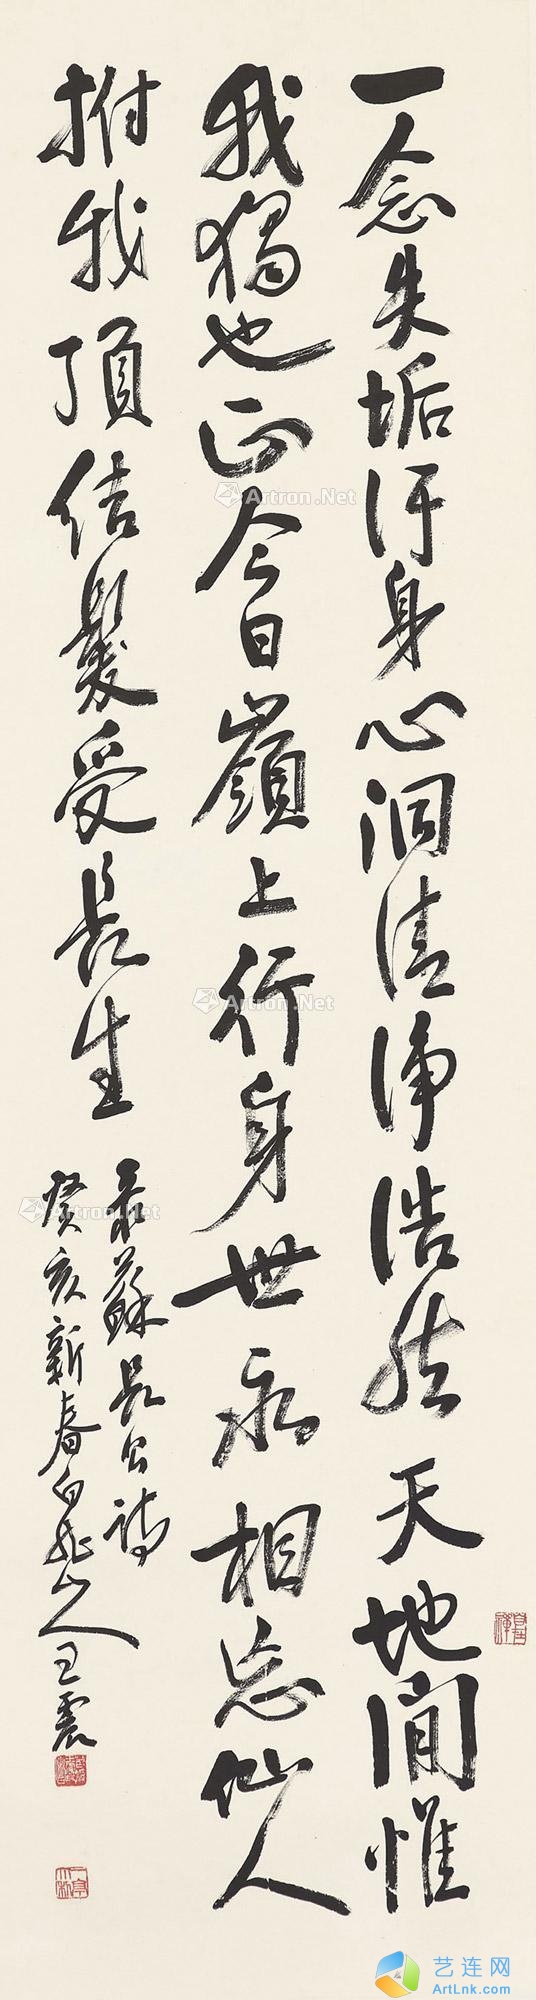 一念失垢汙身心洞清淨浩然天地間惟
我獨也正今日嶺上行身世永相忘仙人
拊我頂結髮受長生
蘇長公詩
癸亥新春白龍山人王震
Artron.Net
Artron.Net
艺连网
ArtLnk.com